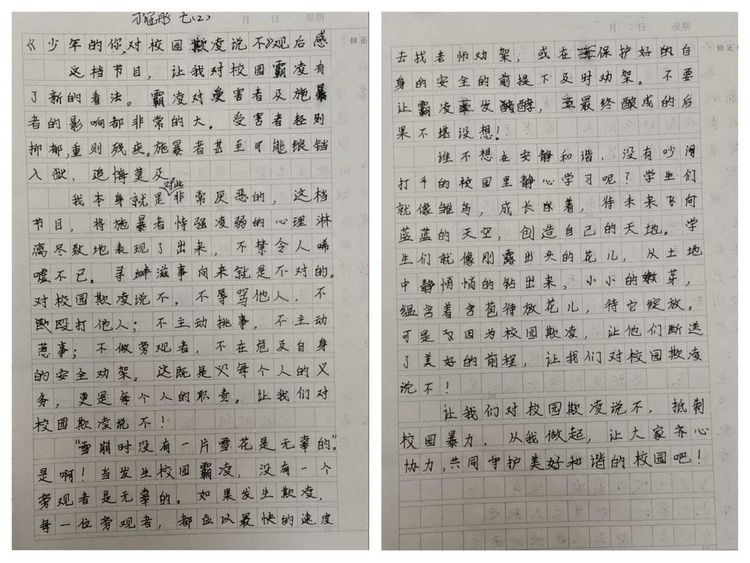 七(2)
月 日 星期
《少年的你,对校园欺凌说不》观后感
这档节目，让我对校园霸凌有
了新的看法。霸凌对受害者及施暴
者的影响都非常的大。受害者轻则
抑郁,重则残疾。施暴者甚至可能锒铛
入狱，追悔莫及。
我本身就是对此非常厌恶的，这档
节目，将施暴者恃强凌弱的心理淋
漓尽致地表现了出来，不禁令人唏
嘘不已。寻衅滋事向来就是不对的。
对校园欺凌说不，不辱骂他人，不
殴打他人；不主动挑事，不主动
惹事；不做旁观者，不在危及自身
的安全劝架。这既是每个人的义
务，更是每个人的职责。让我们对
校园欺凌说不！
“雪崩时没有一片雪花是无辜的。”
是啊！当发生校园霸凌，没有一个
旁观者是无辜的。如果发生欺凌，
每一位旁观者，都应以最快的速度
月 日 星期
去找老师劝架，或在保护好的自
身的安全的前提下及时劝架。不要
让霸凌发酵，最终酿成的后
果不堪设想！
谁不想在安静和谐，没有吵闹
打斗的校园里静心学习呢？学生们
就像雏鸟，成长着，待未来飞向
蓝蓝的天空，创造自己的天地。学
生们就像刚露出头的花儿，从土地
中静悄悄的钻出来，小小的嫩芽，
蕴含着含苞待放花儿，待它绽放。
可是因为校园欺凌，让他们断送
了美好的前程，让我们对校园欺凌
说不！
让我们对校园欺凌说不，抵制
校园暴力，从我做起，让大家齐心
协力,共同守护美好和谐的校园吧！